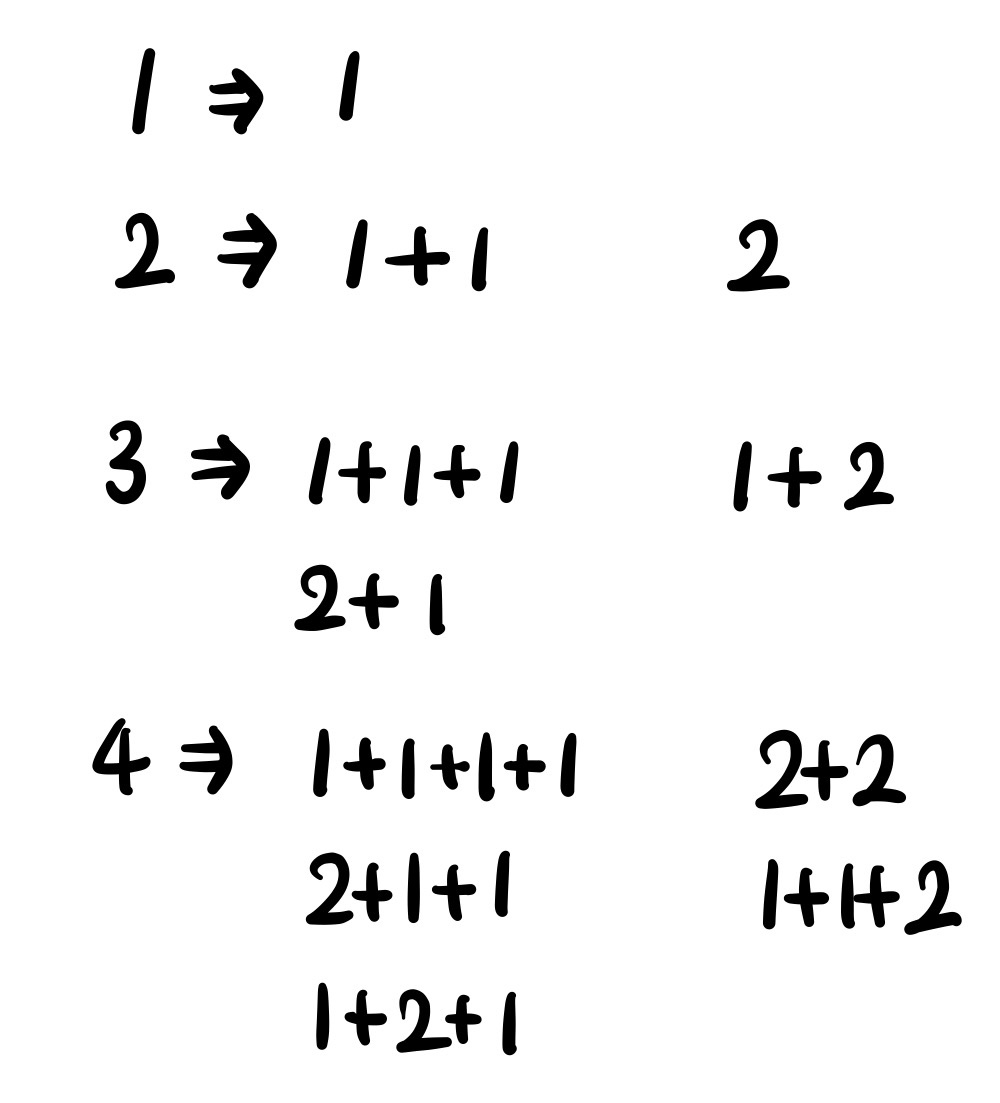 1 ⇒ 1
2 ⇒ 1+1 2
3 ⇒ 1+1+1 1+2
2+1
4 ⇒ 1+1+1+1 2+2
2+1+1 1+1+2
1+2+1